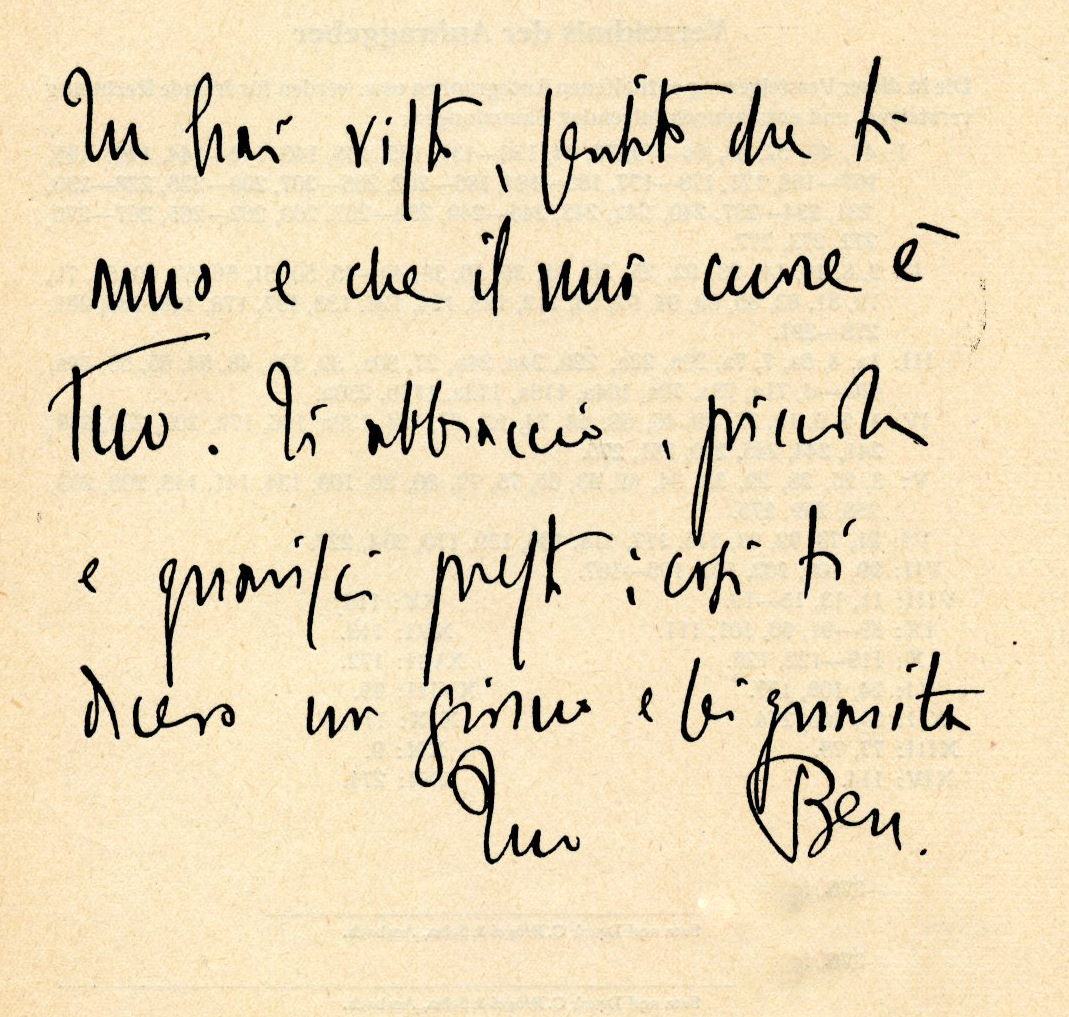 Tu hai visto, sentito che ti
amo e che il mio cuore è
Tuo. Ti abbraccio, piccola
e guarisci presto; così ti
dicevo un giorno e lei guarita
Tuo Ben.